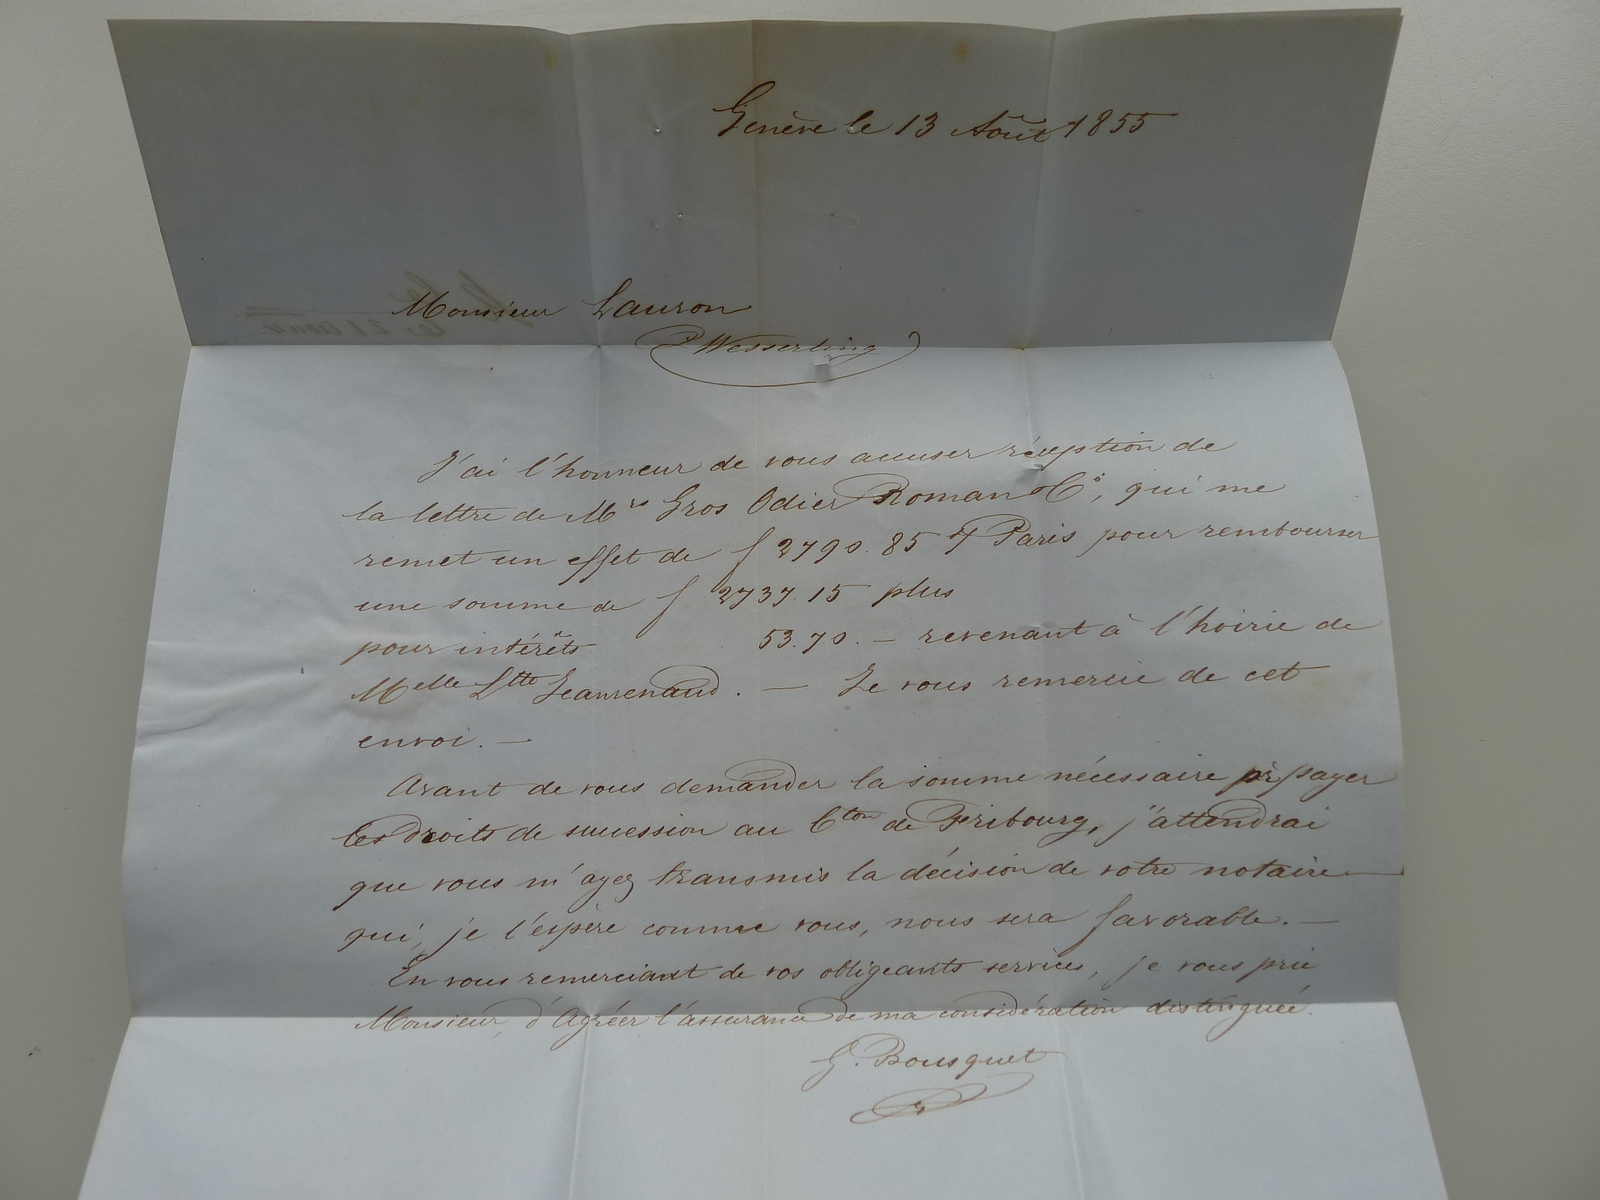 Genève le 13 Août 1855
Monsieur Lauron
Wesserling
J'ai l'honneur de vous accuser réception de
la lettre de Mrs Gros Odier Roman & Cie, qui me
remet un effet de f 2790.85 s/ Paris pour rembourser
une somme de f 2737.15 plus
pour intérêts 53.70. — revenant à l'hoirie de
Melle Ltte Jeanrenaud. — Je vous remercie de cet
envoi. —
Avant de vous demander la somme nécessaire pr payer
les droits de succession au Cton de Fribourg, j'attendrai
que vous m'ayez transmis la décision de votre notaire
qui, je l'espère comme vous, nous sera favorable. —
En vous remerciant de vos obligeants services, je vous prie
Monsieur, d'Agréer l'assurance de ma considération distinguée.
G. Bousquet